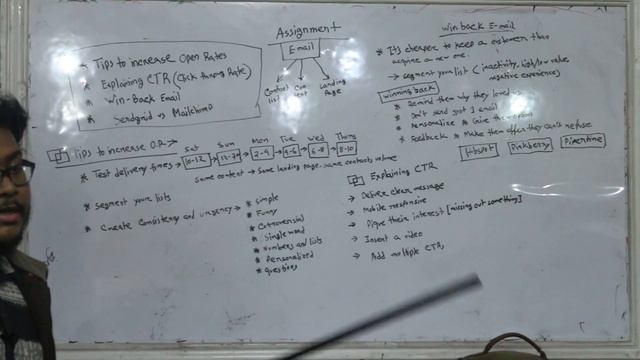 Tips to increase Open Rates
* Explaining CTR (Click through Rate)
* Win-Back Email
* Sendgrid vs Mailchimp
Assignment
E-mail
Contact list
Content
Landing Page
Win back E-mail
* It's cheaper to keep a customer than
acquire a new one.
→ segment your list (inactivity, high/low value,
negative experience)
winning back
* Remind them why they loved us
* Don't send just 1 email
* Personalize * Give them options
* Feedback * Make them offers they can't refuse.
Hubspot
Pinkberry
Pipentine
Tips to increase O.R →
* Test delivery times →
Sat Sun Mon Tue Wed Thurs
10-12 → 12-7 → 2-4 → 4-6 → 6-8 → 8-10
Same content → Same landing page. same contacts volume
* segment your lists
* Create Consistency and urgency →
* Simple
* Funny
* Controversial
* Single word
* Numbers and lists
* Personalized
* Questions
Explaining CTR
→ Deliver clear message
→ Mobile responsive
→ Pique their interest [missing out something]
→ Insert a video
→ Add multiple CTRs